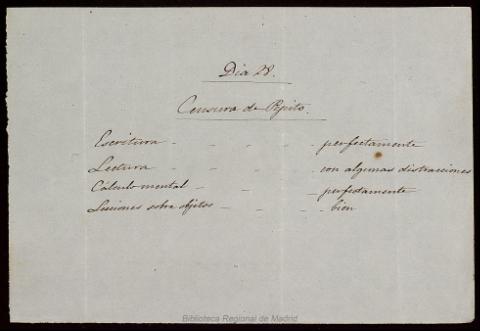 Dia 28.
Censura de Pepito.
Escritura - - - - - perfectamente
Lectura - - - - con algunas distracciones
Cálculo mental - - - - perfectamente
Lecciones sobre objetos - - - - bien
Biblioteca Regional de Madrid